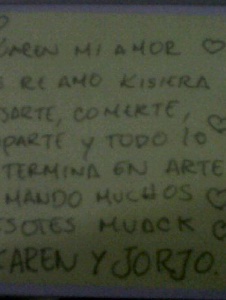 KAREN MI AMOR
RE AMO KISIERA
COMERTE,
Y TODO LO
TERMINA EN ARTE
MANDO MUCHOS
MUACK
KAREN Y JORJO.